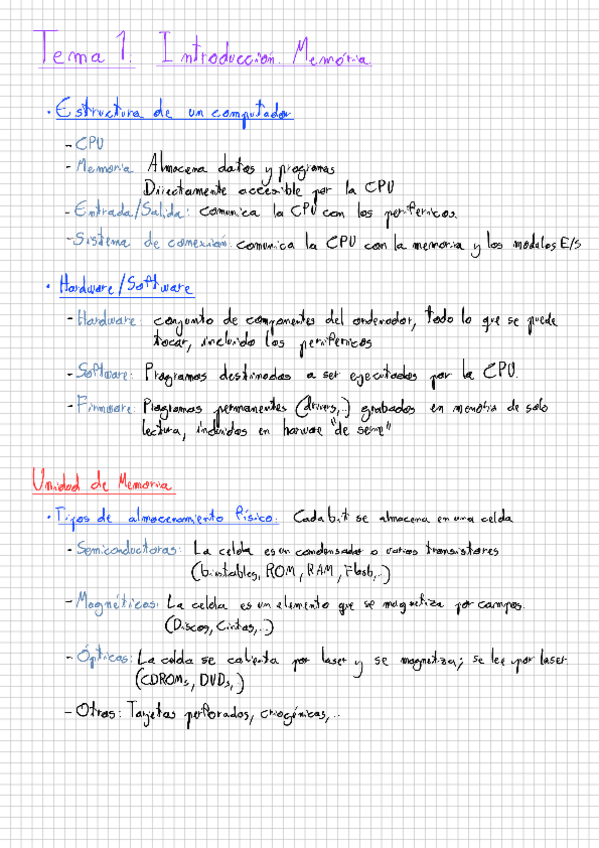 Tema 1: Introducción. Memória
· Estructura de un computador
- CPU
- Memoria Almacena datos y programas
Directamente accesible por la CPU
- Entrada/Salida: comunica la CPU con los perifericos.
- Sistema de conexión: comunica la CPU con la memoria y los modulos E/S
· Hardware/Software
- Hardware: conjunto de componentes del ordenador, todo lo que se puede
tocar, incluido los perifericos
- Software: Programas destinados a ser ejecutados por la CPU.
- Firmware: Programas permanentes (drivers,..) grabados en memoria de solo
lectura, incluidos en harware "de serie"
Unidad de Memoria
· Tipos de almacenamiento físico: Cada bit se almacena en una celda
- Semiconductoras: La celda es un condensador o varios transistores
(biestables, ROM, RAM, Flash,..)
- Magnéticas: La celda es un elemento que se magnetiza por campos.
(Discos, Cintas,..)
- Ópticas: La celda se calienta por laser y se magnetiza; se lee por laser
(CDROMs, DVDs,)
- Otras: Tarjetas perforadas, criogénicas,..